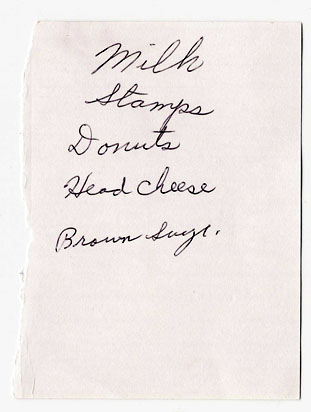 Milk
Stamps
Donuts
Head cheese
Brown Sugr.